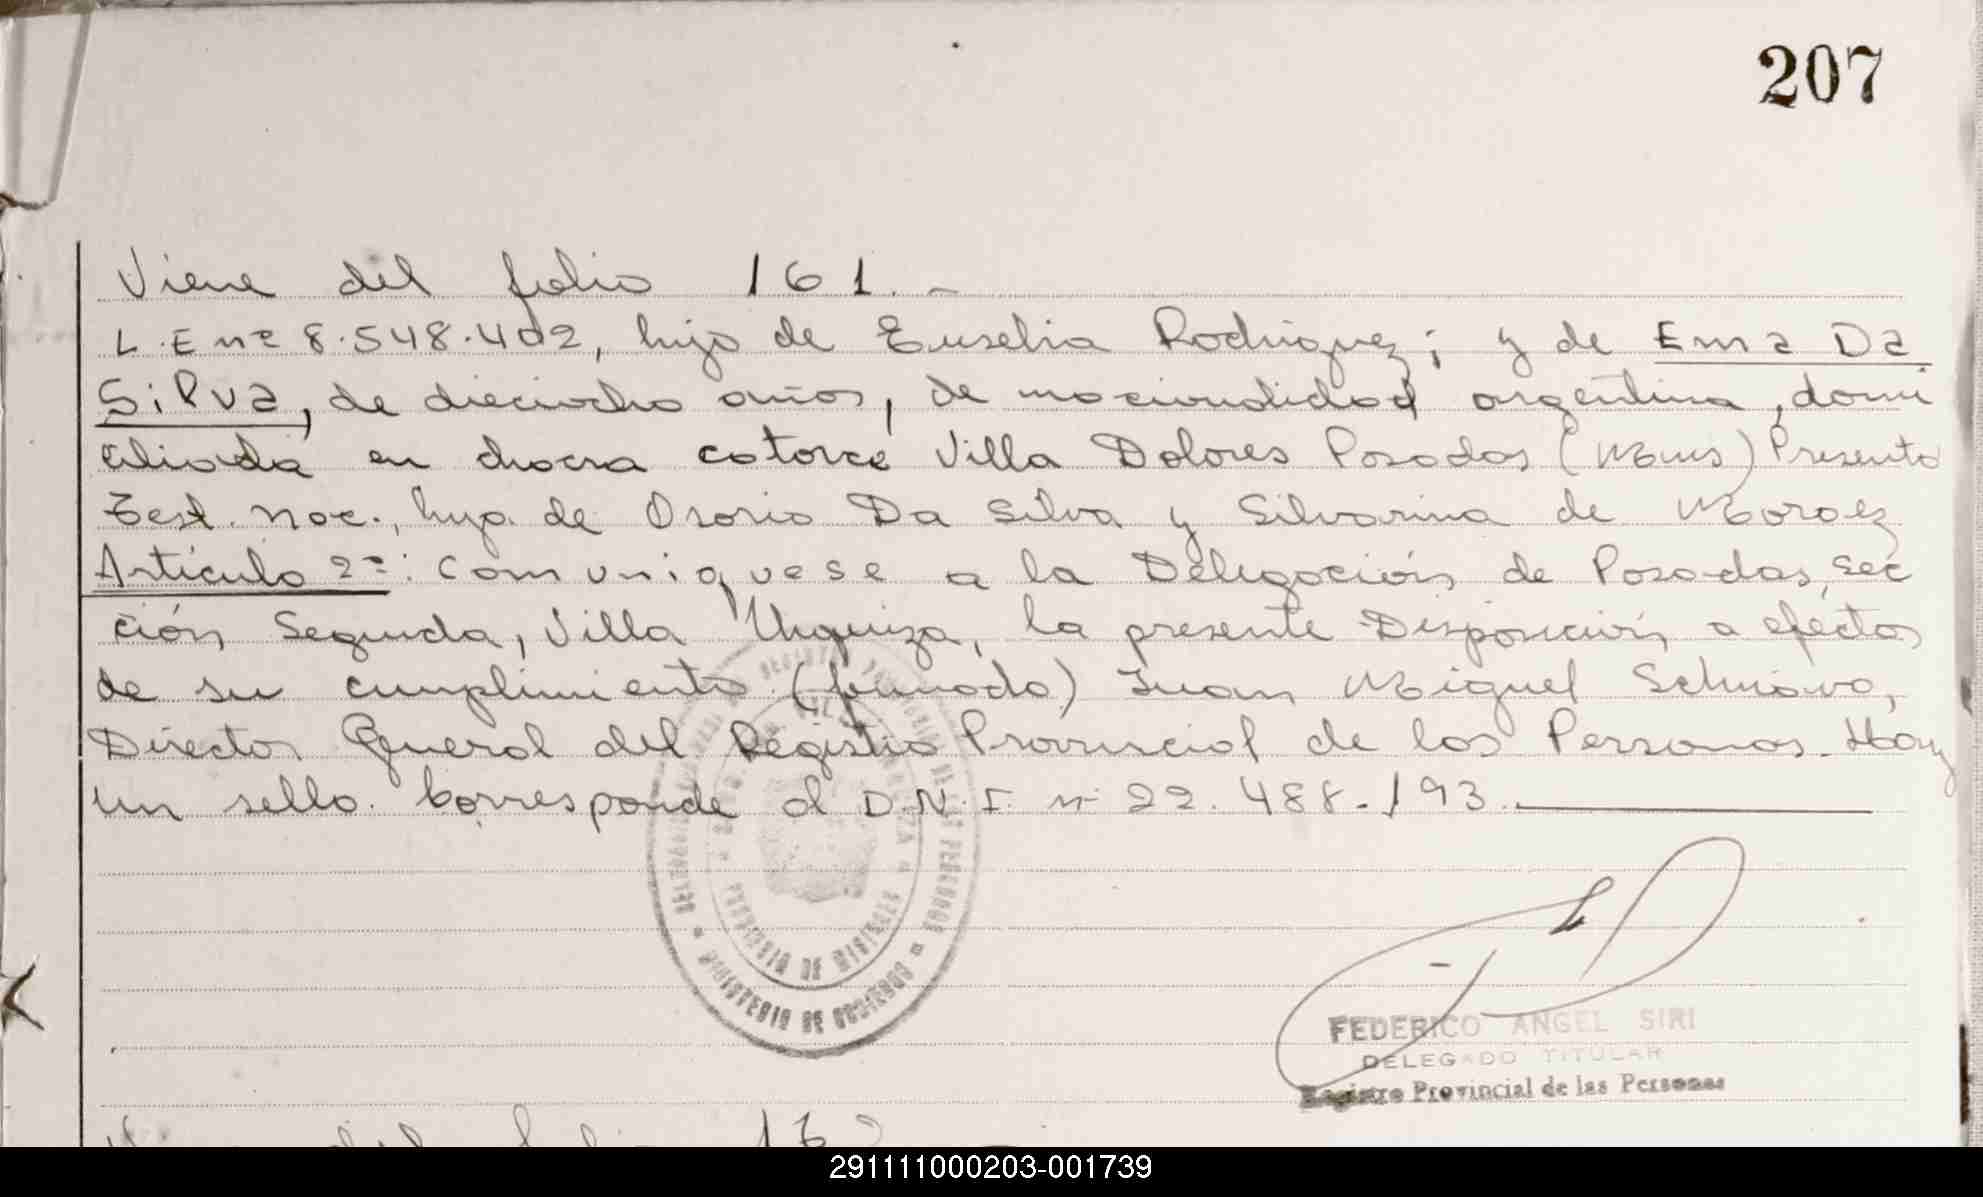 207
Viene del folio 161.-
L.E nº 8.548.402, hijo de Euselia Rodriguez; y de Ema Da
Silva, de dieciocho años, de nacionalidad argentina, domi
ciliada en chacra catorce Villa Dolores Posadas (Mnes) Presento
Test. nac., hija de Osorio Da Silva y Silvarina de Moraez
Artículo 2º: Comuníquese a la Delegación de Posadas, sec
ción Segunda, Villa Urquiza, la presente Disposición a efectos
de su cumplimiento (firmado) Juan Miguel
Director General del Registro Provincial de los Personas. Hay
un sello. Corresponde al D.N.I. nº 22.488.193.
REGISTRO PROVINCIAL DE LAS PERSONAS
PROVINCIA DE MISIONES
MINISTERIO DE GOBIERNO
FEDERICO ANGEL SIRI
DELEGADO TITULAR
Registro Provincial de las Personas
291111000203-001739